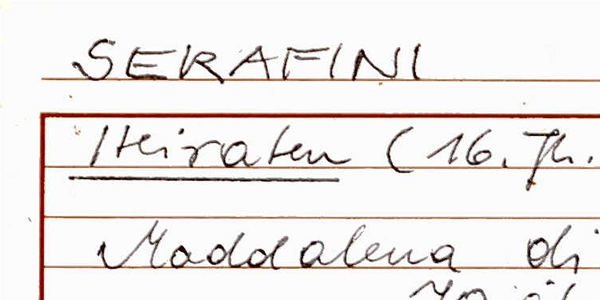 SERAFINI
Heiraten (16. Jh.
Maddalena di